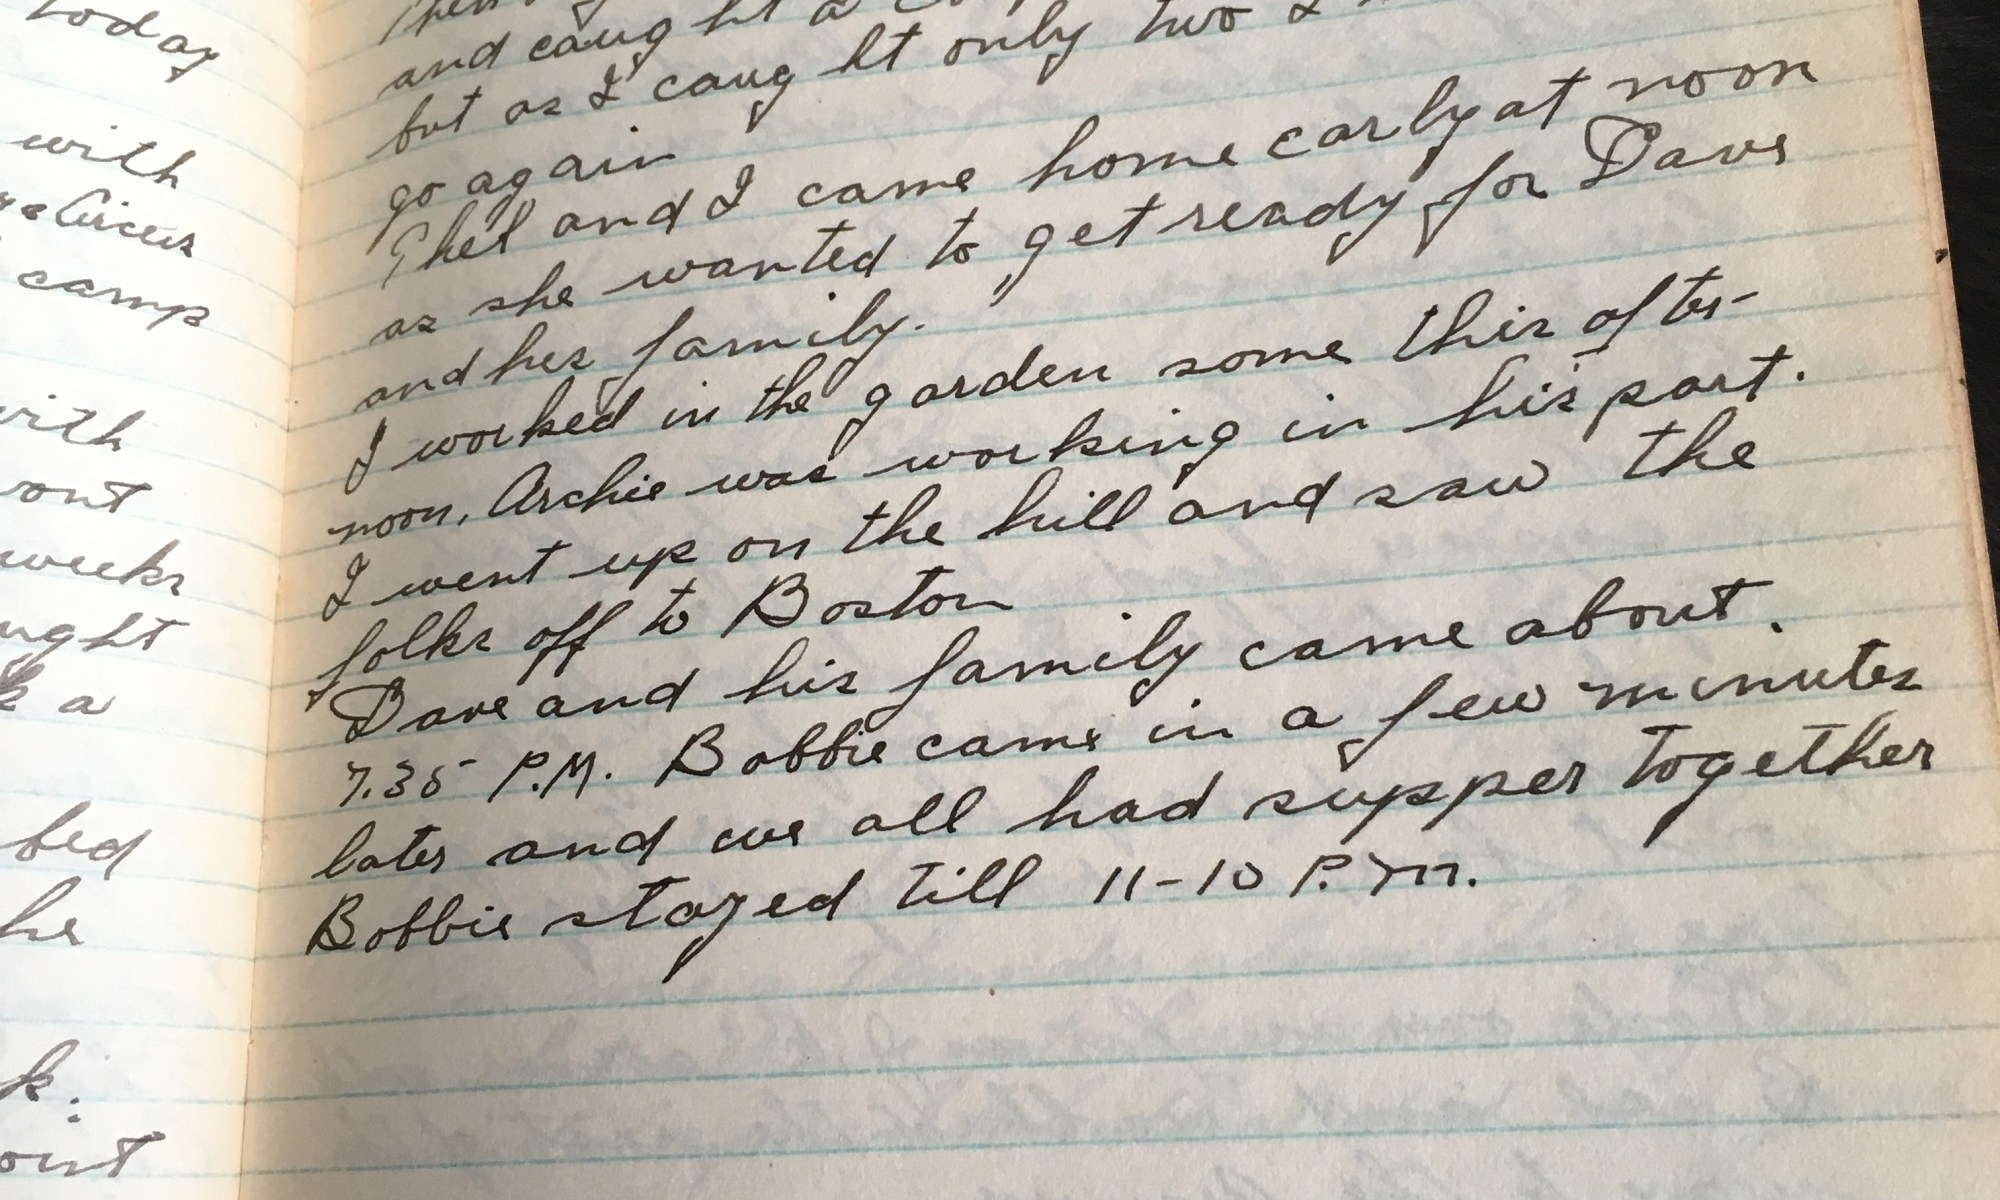 today
with
Circus
camp
with
weeks
ught
a
bed
he
k.
out
and caught a
but as I caught only two I
go again
Thel and I came home early at noon
as she wanted to get ready for Dave
and her family.
I worked in the garden some this after-
noon, Archie was working in his part.
I went up on the hill and saw the
folks off to Boston
Dave and his family came about
7.35 P.M. Bobbie came in a few minutes
later and we all had supper together
Bobbie stayed till 11-10 P.M.